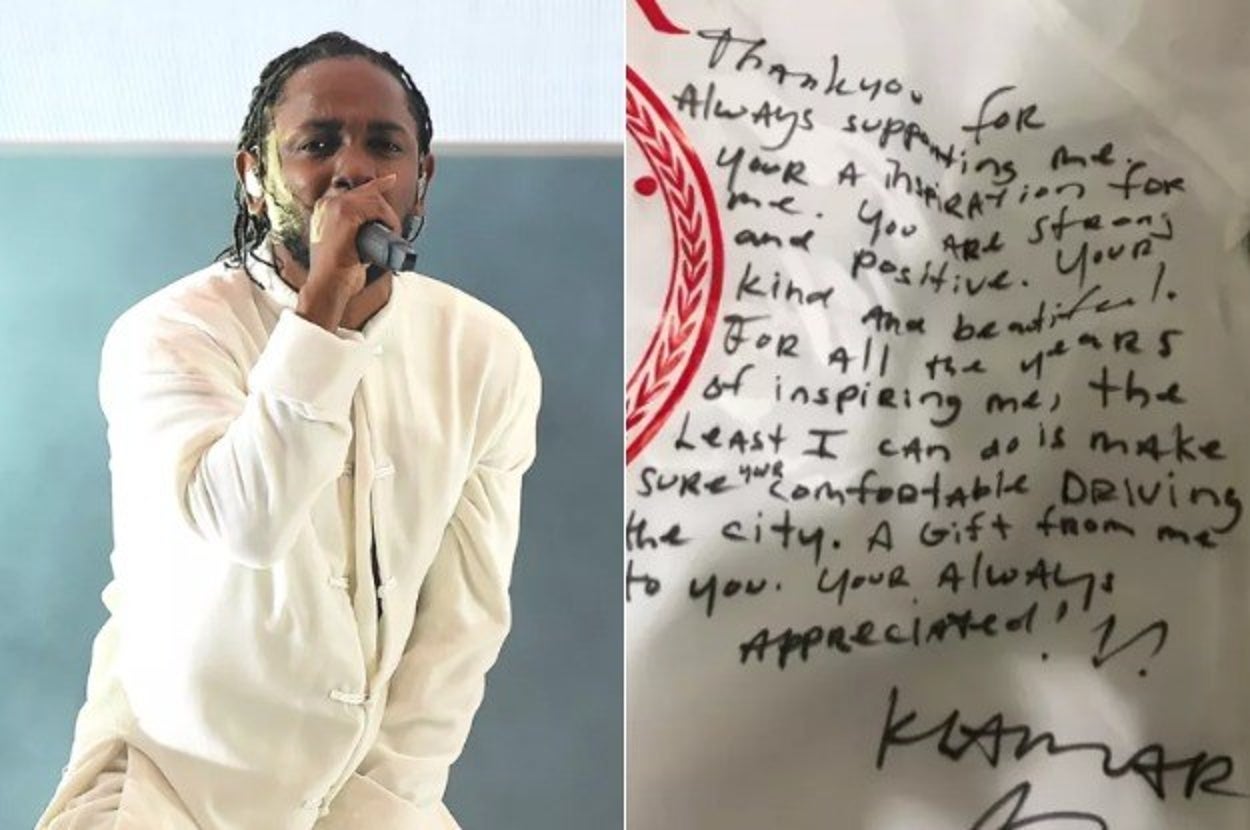 Thankyou for
Always supporting me.
Your A inspiration for
me. You are strong
and positive. Your
kind And beautiful.
For All the years
of inspiring me, the
Least I can do is make
sure your comfortable DRiving
the city. A Gift from me
to you. Your Always
Appreciated!
KLAMAR